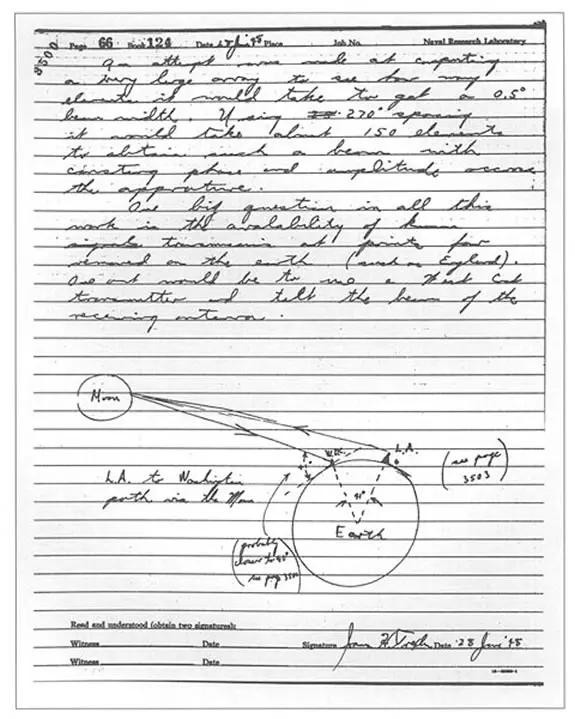 3500
Page 66 Book 124 Date 28 June '48 Place Job No. Naval Research Laboratory
An attempt was made at computing
a very large array to see how many
elements it would take to get a 0.5°
beam width. Using 270° spacing
it would take about 150 elements
to obtain such a beam with
constant phase and amplitude across
the
One big question in all this
work is the availability of known
signals transmissions at points far
removed on the earth (such as England).
One out would be to use a West Coast
transmitter and tilt the beam of the
receiving antenna.
Moon
L.A.
(see page
3503)
L.A. to Washington
path via the Moon
Earth
(probably
closer to
see page 3500)
Read and understood (obtain two signatures):
Witness Date Signature James H Trexler Date 28 June '48
Witness Date